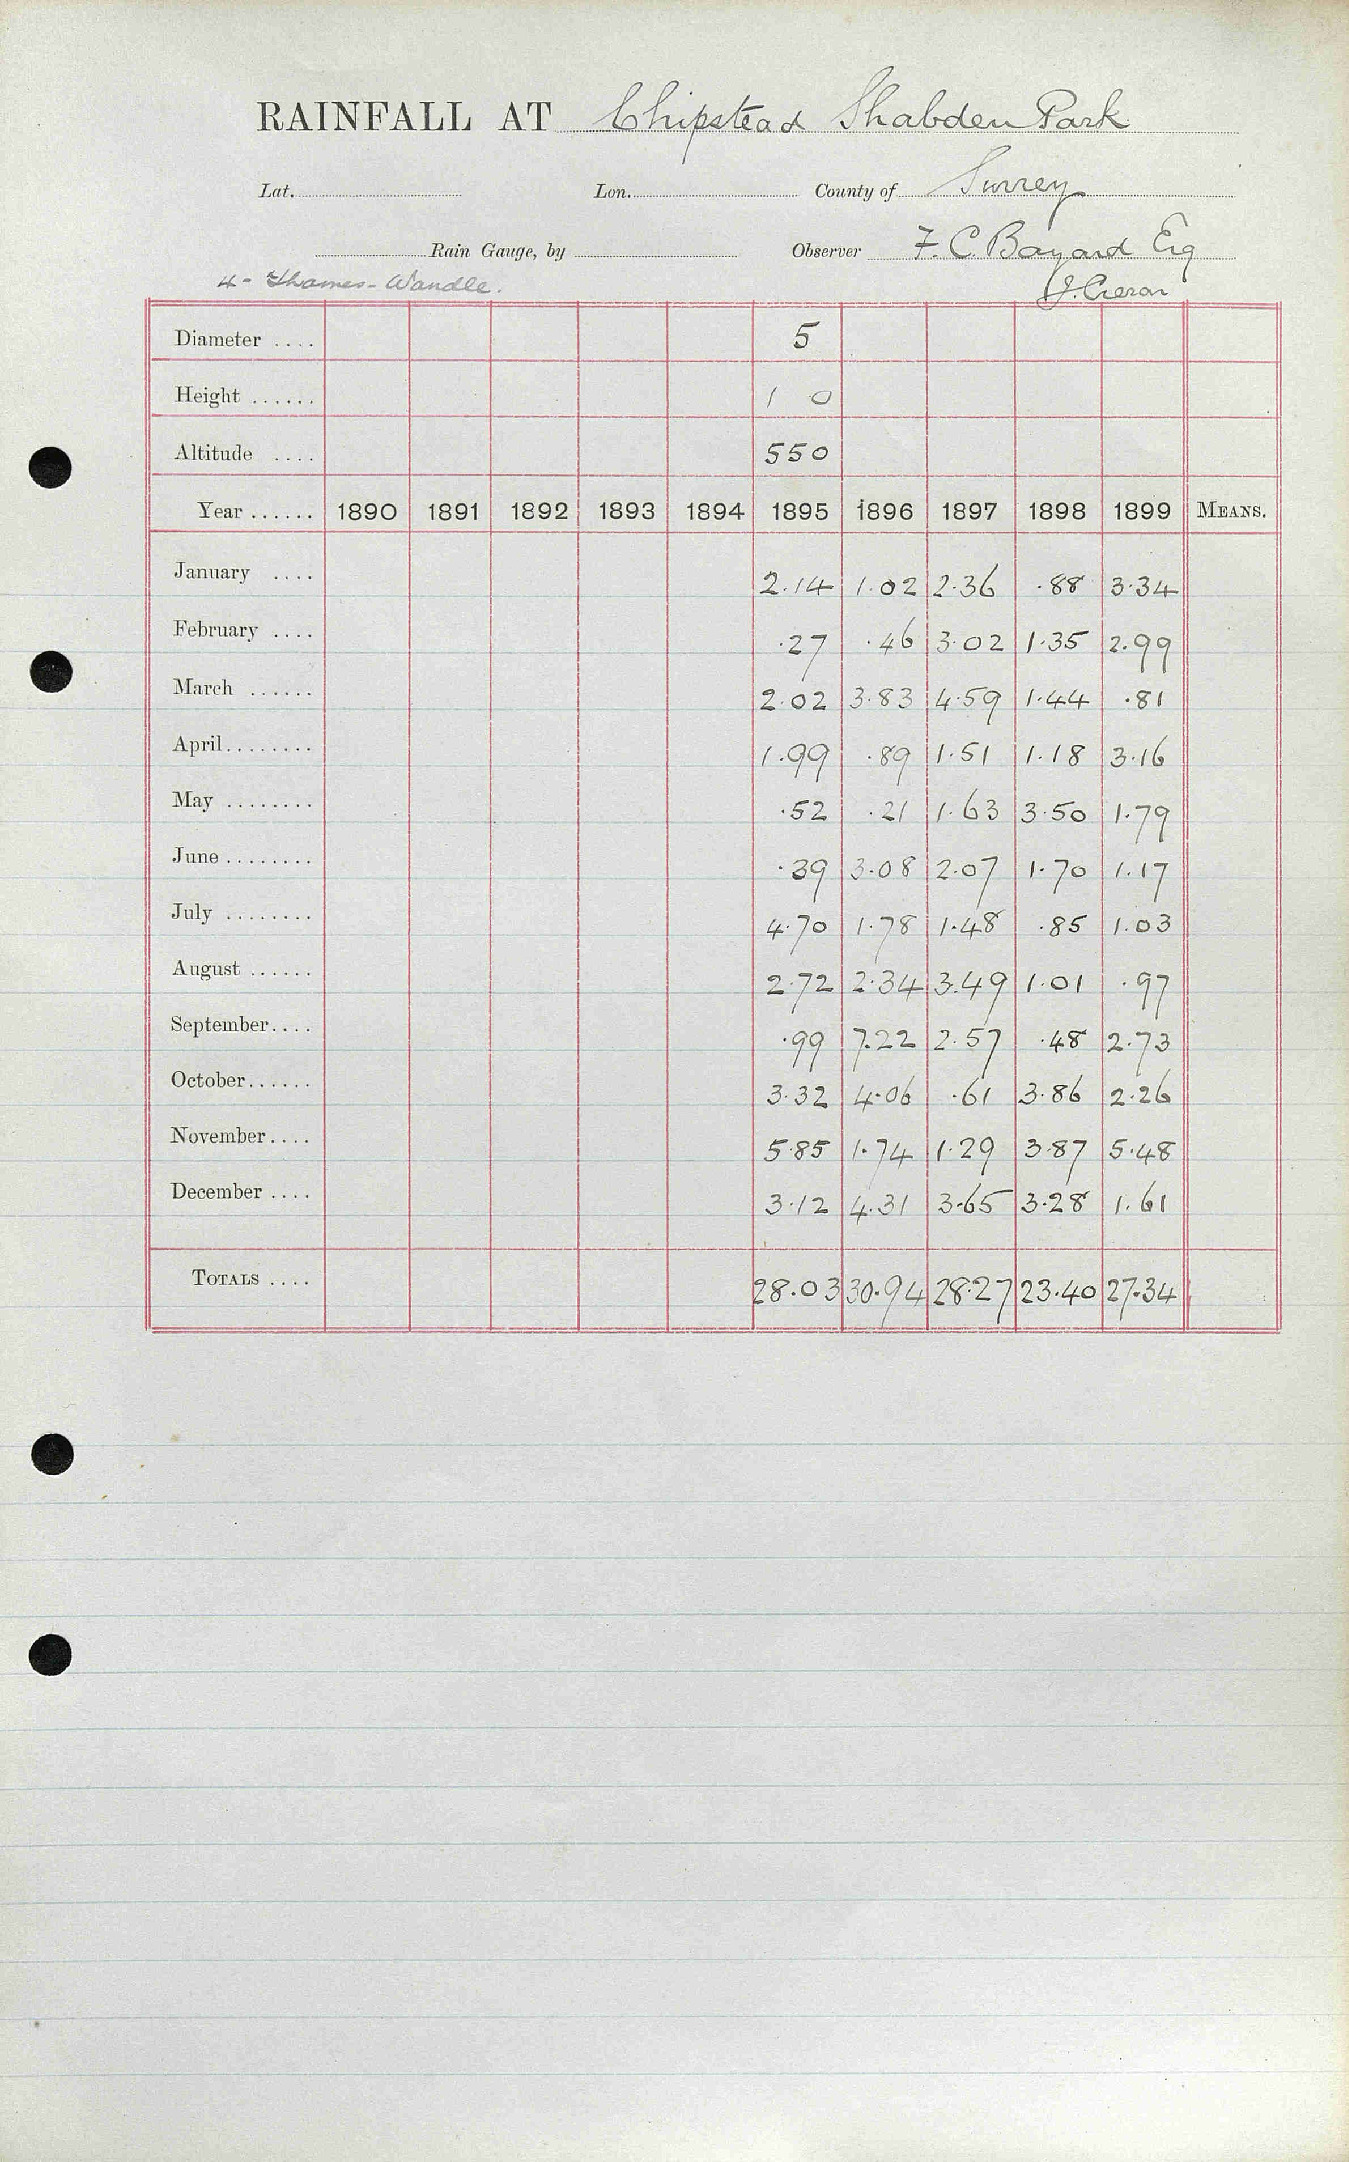 RAINFALL AT Chipstead Shabden Park
Lat. Lon. County of Surrey
Rain Gauge, by Observer F. C. Bayard Esq
4 - Thames - Wandle.
Diameter .... 5
Height ...... 1 0
Altitude .... 550
Year ...... 1890 1891 1892 1893 1894 1895 1896 1897 1898 1899 MEANS.
January .... 2.14 1.02 2.36 .88 3.34
February .... .27 .46 3.02 1.35 2.99
March ...... 2.02 3.83 4.59 1.44 .81
April........ 1.99 .89 1.51 1.18 3.16
May ........ .52 .21 1.63 3.50 1.79
June ........ .39 3.08 2.07 1.70 1.17
July ........ 4.70 1.78 1.48 .85 1.03
August ...... 2.72 2.34 3.49 1.01 .97
September.... .99 7.22 2.57 .48 2.73
October...... 3.32 4.06 .61 3.86 2.26
November.... 5.85 1.74 1.29 3.87 5.48
December .... 3.12 4.31 3.65 3.28 1.61
TOTALS .... 28.03 30.94 28.27 23.40 27.34